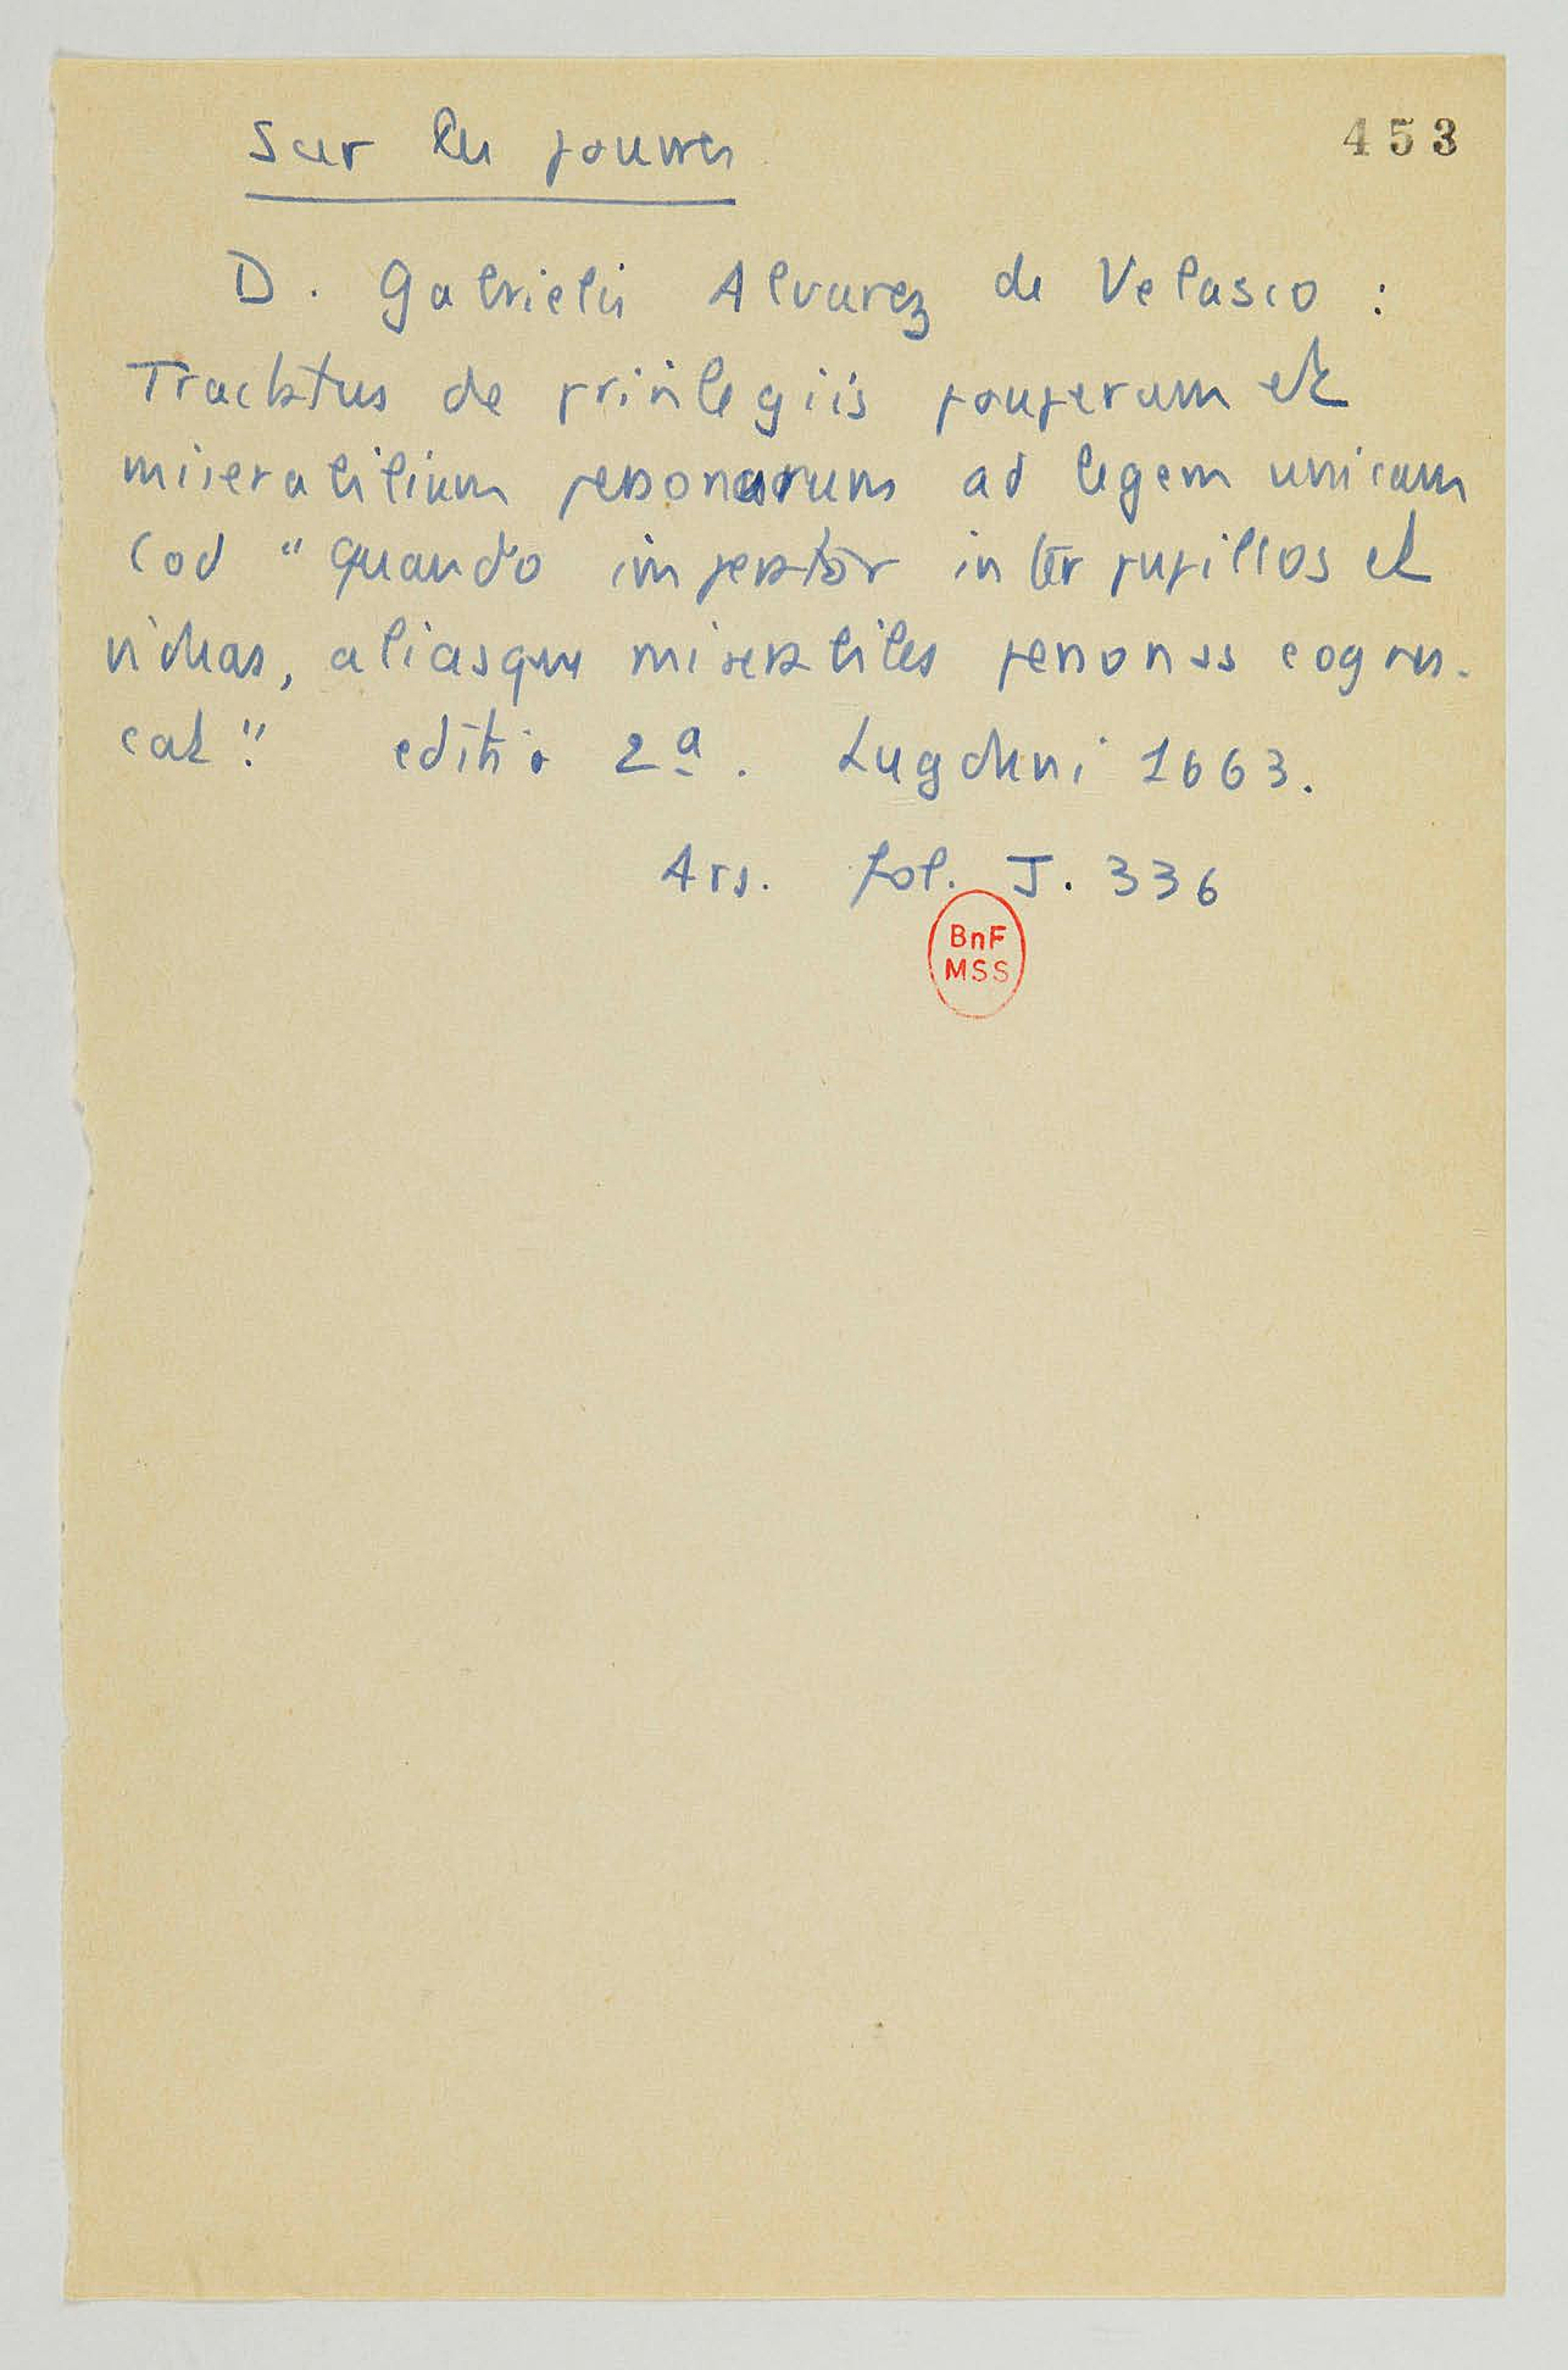 453
Sur les pauvres
D. Gabrielis Alvarez de Velasco :
Tractatus de privilegiis pauperum et
miserabilium personarum ad legem unicam
Cod "quando imperator inter pupillos et
viduas, aliasque miserabiles personas cognos-
cat". editio 2a. Lugduni 1663.
Ars. fol. J. 336
BnF
MSS